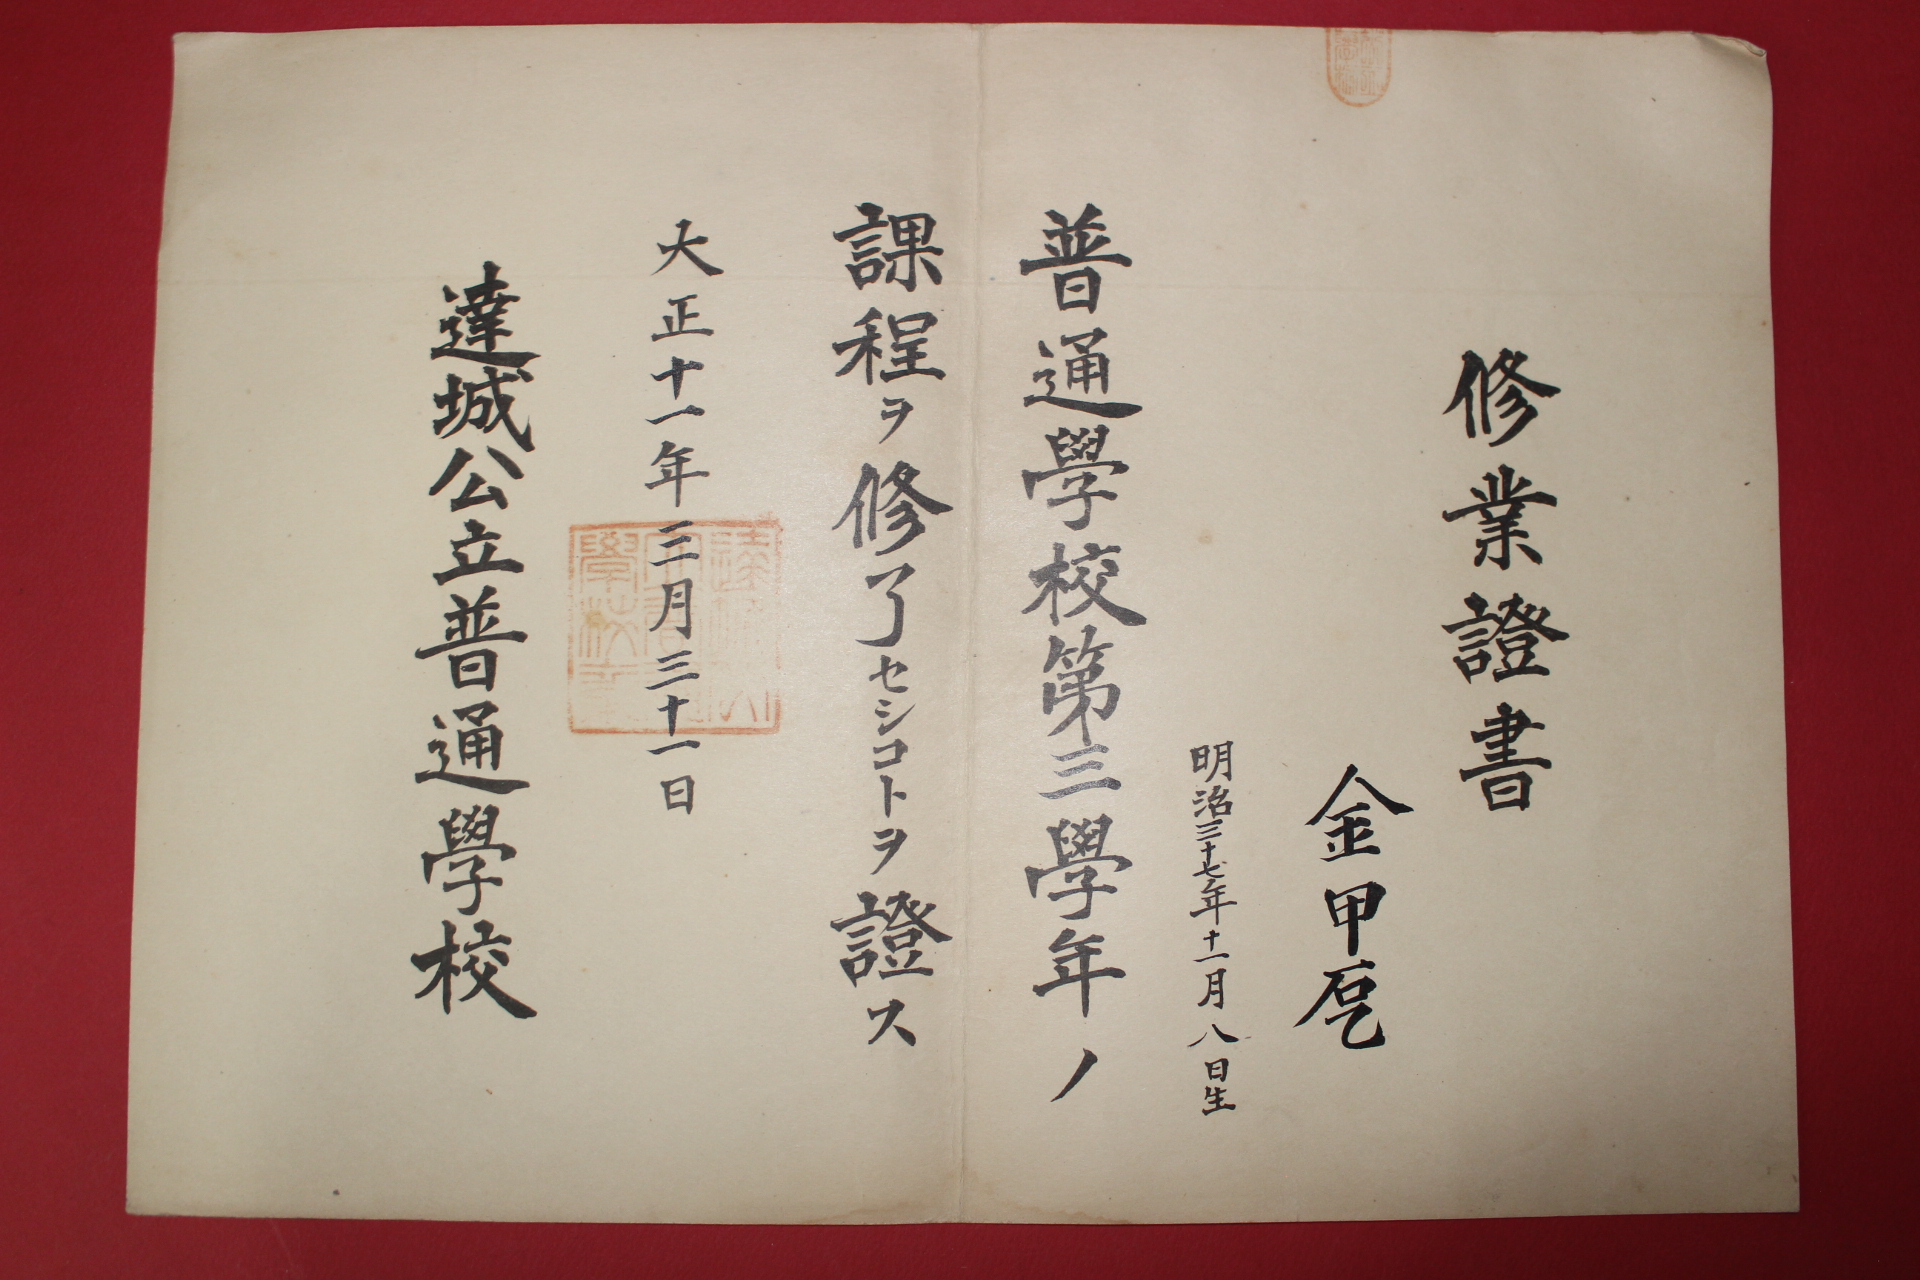 修業證書
金甲䂖
明治三十七年十一月八日生
普通學校第三學年ノ
課程ヲ修了セシコトヲ證ス
大正十一年三月三十一日
達城公立普通學校